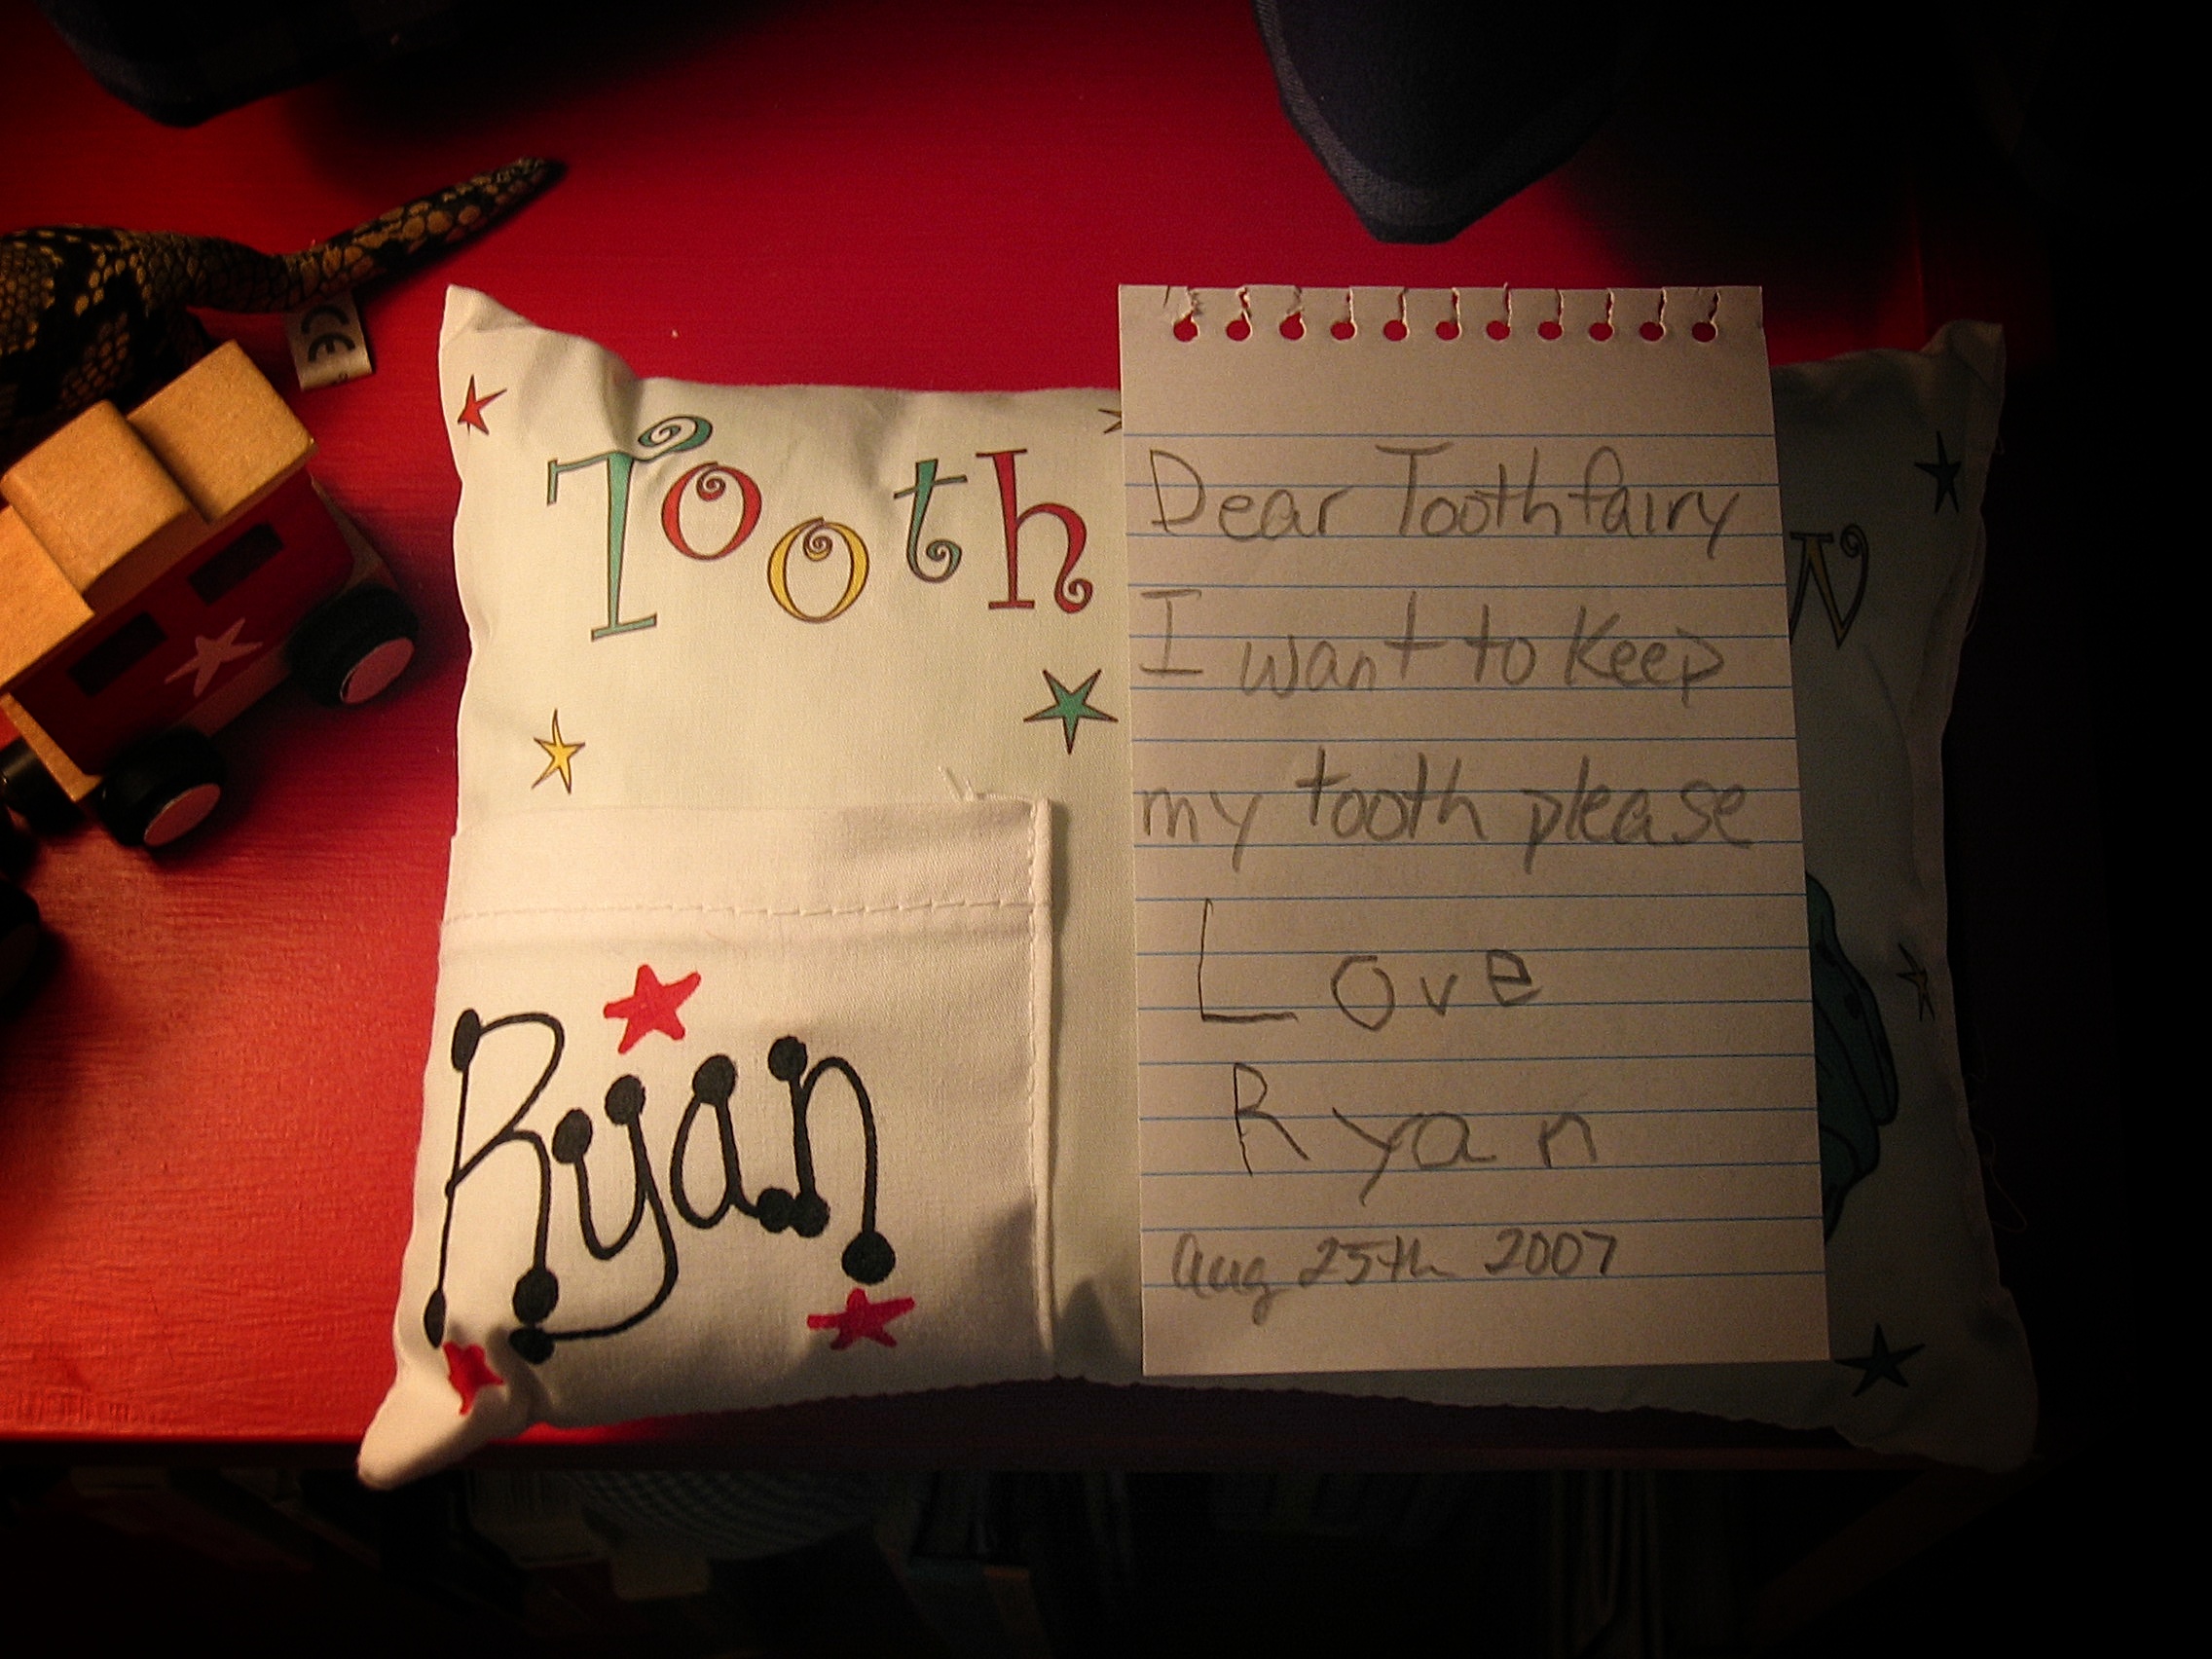 Tooth
N
CE
Ryan
Dear Toothfairy
I want to keep
my tooth please
Love
Ryan
Aug 25th 2007